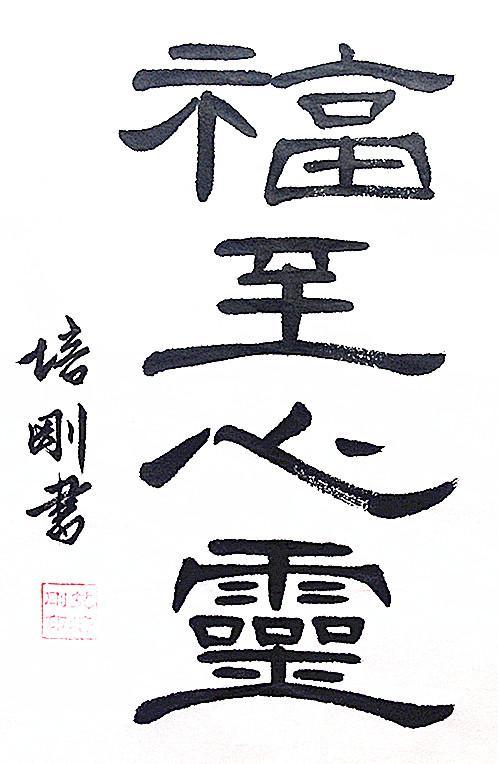 福至心靈
培剛書